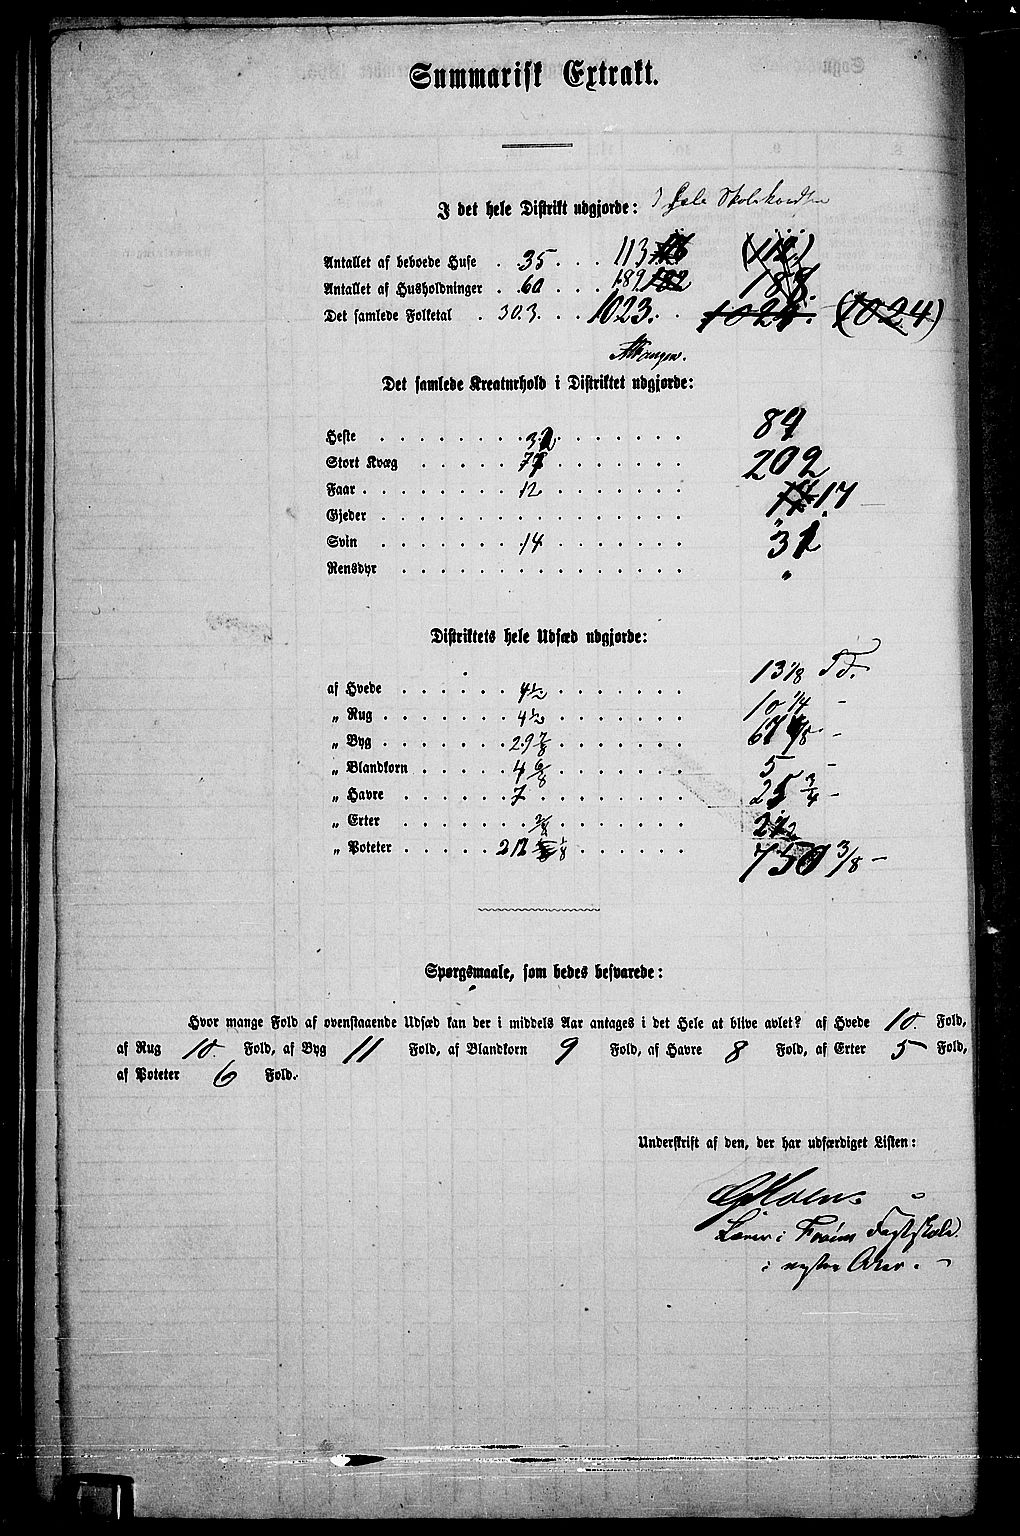 Summarisk Extrakt.
I det hele Distrikt udgjorde: I hele Skolekredsen
Antallet af beboede Huse . 35 . . . 113 116 (112)
Antallet af Husholdninger . 60 . . . 189 182 188.
Det samlede Folketal . 303. . . . 1023. . . 1024. (1024)
Det samlede Kreaturhold i Distriktet udgjorde:
Heste 89
Stort Kvæg 77 202
Faar 12 17
Gjeder "
Svin 14 31
Rensdyr "
Distriktets hele Udsæd udgjorde:
af Hvede 4½ 13 1/8 Td.
„ Rug 4½ 10 1/4 -
„ Byg 29 7/8 -
„ Blandkorn 4 6/8 5 -
„ Havre 7 25 3/4 -
„ Erter 2/8
„ Poteter 212 1/8 750 3/8 -
Spørgsmaale, som bedes besvarede:
Hvor mange Fold af ovenstaaende Udsæd kan der i middels Aar antages i det Hele at blive avlet? af Hvede 10. Fold,
af Rug 10. Fold, af Byg 11 Fold, af Blandkorn 9 Fold, af Havre 8 Fold, af Erter 5 Fold,
af Poteter 6 Fold.
Underskrift af den, der har udfærdiget Listen:
Moen.
Lærer i Frøens Fastskole
i vestre Aker.